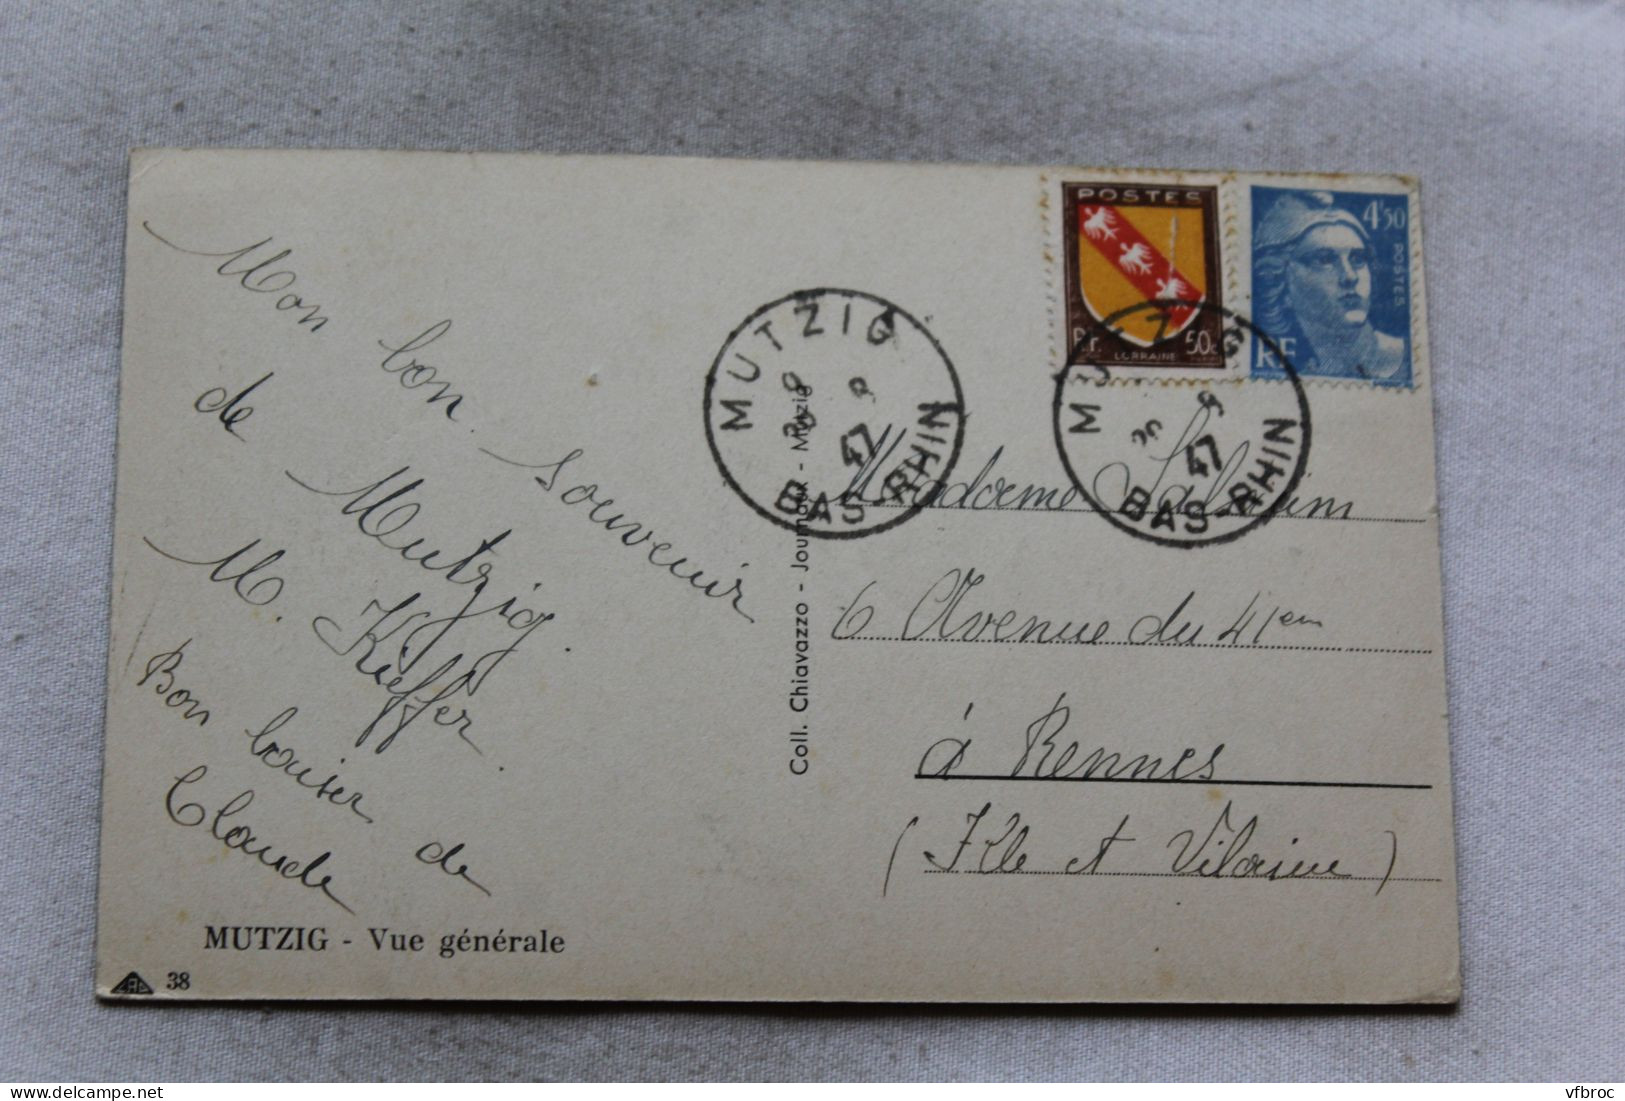 Mon bon souvenir
de Mutzig.
M. Kieffer
Bon baiser de
Claude
MUTZIG - Vue générale
38
Coll. Chiavazzo - Journaux - Mutzig
POSTES
RF
50c
LORRAINE
4F50
POSTES
RF
MUTZIG
47
BAS-RHIN
MUTZIG
47
BAS-RHIN
Madame
6 Avenue du 41em
à Rennes
(Ille et Vilaine)
vfbroc
delcampe.net